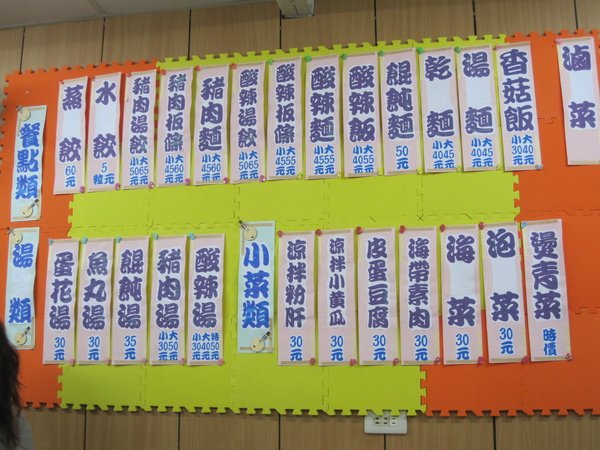 餐點類
蒸餃
60元
水餃
5元
豬肉湯餃
小大
5065元元
豬肉板條
小大
4560元元
豬肉麵
小大
4560元元
酸辣湯餃
小大
5065元元
酸辣板條
小大
4555元元
酸辣麵
小大
4555元元
酸辣飯
小大
4055元元
餛飩麵
50元
乾麵
小大
4045元元
湯麵
小大
4045元元
香菇飯
小大
3040元元
滷菜
湯類
蛋花湯
30元
魚丸湯
30元
餛飩湯
35元
豬肉湯
小大
3050元元
酸辣湯
小大特
304050元元元
小菜類
涼拌粉肝
30元
涼拌小黃瓜
30元
皮蛋豆腐
30元
海帶素肉
30元
海菜
30元
泡菜
30元
燙青菜
時價